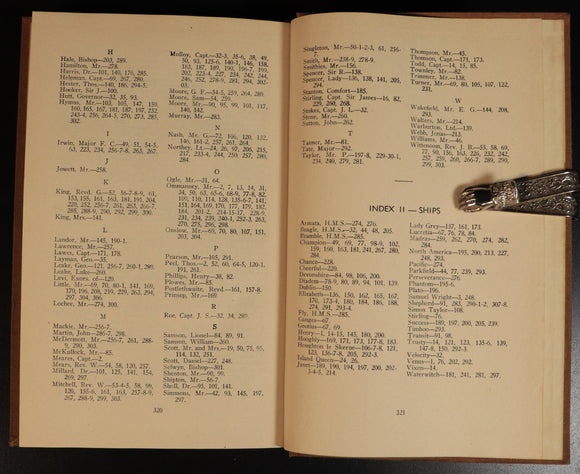 H
Hale, Bishop—203, 289.
Hamilton, Mr.—278.
Harris, Dr.—101, 140, 176, 285.
Helpman, Capt.—69, 267, 280.
Hester, Thos.—140, 286-4-5.
Hooker, Sir J.—100.
Hutt, Governor—32, 35, 93.
Hymus, Mr.—103, 105, 147, 159,
160, 165, 167, 181, 187, 197, 232,
243-4, 256, 264-5, 270, 273, 285,
302.
I
Irwin, Major F. C.—49, 51, 54-5,
63, 223, 234, 256-7-8, 263, 267.
J
Jowett, Mr.—258.
K
King, Revd. G.—52, 56-7-8-9, 61,
153, 155, 161, 163, 181, 191, 204,
220, 252, 256-7, 261, 263, 266-7,
285, 288-9, 290, 292, 299, 300.
King, Mrs.—141.
L
Landor, Mr.—145, 190-1.
Lawrence, Mr.—257.
Lawes, Capt.—171, 178.
Layman, Geo.—35.
Leake, Geo.—121, 256-7, 260-1, 289.
Leake, Luke—260.
Levi, Essex, of—120.
Little, Mr.—69, 70, 80-1, 141, 169,
170, 196, 208, 219, 229, 263, 294,
297, 304, 306.
Locher, Mr.—274, 300.
M
Mackie, Mr.—256-7.
Martin, John—286-7, 298.
McDermott, Mr.—256-7, 261, 288-
9, 290, 303.
McKullock, Mr.—85.
Meares, Capt.—2.
Mears, Rev. W.—54, 58, 120, 257.
Millard, Dr.—101, 125, 141, 154,
269, 297.
Mitchell, Rev. W.—53-4-5, 58, 99,
120, 155-6, 161, 163, 257-8-9,
267, 288-9, 299, 303.
Molloy, Capt.—32-3, 35-6, 38, 49,
50, 93, 125-6, 140-1, 146, 158,
163, 187, 189, 190, 196-7, 199,
202, 223-4, 227, 234, 242, 244,
246, 252, 278-9, 281, 294, 302-
3-5.
Moore, G. F.—54-5, 259, 264, 280.
Moore, Sam—54, 259.
Moore, Mr.—90, 95, 99, 101, 117,
140, 142.
Murray, Mr.—283.
N
Nash, Mr. G.—72, 106, 120, 132,
146, 161-2, 257, 261, 264.
Northey, Lt.—24, 26, 97, 206, 215,
217, 233-4, 244, 250, 257, 280,
284.
O
Ogle, Mr.—31, 64.
Ommanney, Mr.—2, 7, 13, 14, 31,
34, 50, 63, 65-6, 68-9, 77-8, 82,
109, 110, 114, 128, 135-6-7, 141,
151, 164, 169, 170, 177, 179, 182,
184, 201-2, 214-15-17, 228-9,
231, 234, 239, 240-1, 292-3, 263,
270, 275, 296, 298.
Onslow, Mr.—69, 70, 80, 107, 151,
203, 304.
P
Pearson, Mr.—105, 291.
Peel, Thos.—2, 52, 60, 64-5, 120-1,
191, 263.
Phillips, Henry—38, 82.
Plowes, Mr.—85.
Postlethwaite, Revd.—161, 157-8.
Prinsep, Mr.—169.
R
Roe, Capt. J. S.—32, 34, 289.
S
Samson, Lionel—84, 89, 91.
Samson, William—260.
Scott, Mr. and Mrs.—19, 50, 75, 95,
114, 132, 251.
Scott, Daniel—227, 248.
Selwyn, Bishop—301.
Shenton, Mr.—90, 99.
Shipton, Mr.—56-7.
Shell, Dr.—95, 101, 141.
Simmons, Mr.—42, 93, 145, 197,
297.
320
Singleton, Mr.—50-1-2-3, 61, 256-
7.
Smith, Mr.—238-9, 278-9.
Smithies, Mr.—156.
Spencer, Sir R.—138.
Spencer, Lady—136, 138, 141, 205,
294.
Stanton, Comfort—185.
Stirling, Capt. Sir James—16, 82,
229, 260, 268.
Stokes, Capt. J. L.—32.
Stone, Mr.—260.
Sutton, John—262.
T
Tanner, Mr.—81.
Tate, Major—292.
Taylor, Mr. P.—197-8, 229-30-1,
234, 246, 279, 281.
Thompson, Mr.—45.
Thomson, Capt.—171, 173.
Todd, Capt.—14, 15, 85.
Townley, Mr.—82.
Trimmer, Mr.—138.
Turner, Mr.—69, 80, 105, 107, 122,
231.
W
Wakefield, Mr. E. G.—144, 208,
293.
Walters, Mr.—214.
Warburton, Ltd.—139.
Webb, Jonas—213.
Williams, Mr.—46.
Wittenoom, Rev. J. B.—55, 58, 69,
77, 90, 156, 163, 226, 232, 242,
257, 259, 260, 266-7, 289, 299,
299, 303.
INDEX II — SHIPS
Armata, H.M.S.—274, 276.
Beagle, H.M.S.—32, 44, 48, 205.
Bramble, H.M.S.—285.
Champion—49, 69, 77, 98-9, 102,
159, 160, 163, 181, 241, 267, 280,
284.
Chance—228.
Cheerful—220.
Devonshire—84, 98, 106, 200.
Diadem—78-9, 80, 89, 94, 101, 139.
Dublin—150.
Elizabeth—136, 150, 162, 165, 167,
170, 173-4, 180, 184, 186, 188,
274, 291, 293-4.
Fly, H.M.S.—285.
Ganges—67.
Grotius—67, 69.
Henry—1, 14-15, 145, 180, 200.
Hooghly—169, 171, 173, 177-8, 183.
Houghton le Skerne—106-7-8, 121,
123, 136-7-8, 205, 292-3.
Island Queen—24, 26.
Janet—189, 190, 194, 197, 200, 202-
3-4-5, 214.
Lady Grey—137, 161, 173.
Lucretia—67, 76, 78, 84.
Madras—259, 262, 270, 274, 282,
284.
North America—195, 200, 213, 227,
248, 293.
Pacific—274.
Parkfield—44, 77, 239, 293.
Perseverance—276.
Phantom—195-6.
Plato—196.
Samuel Wright—3, 248.
Shepherd—91, 283, 290-1-2, 307-8.
Simon Taylor—108.
Stirling—76.
Success—189, 197, 200, 205, 239.
Timbo—293.
Transit—91, 98.
Trusty—14, 121, 123, 135-6, 139,
147-8, 150, 292-3.
Velocity—32.
Venus—1, 76, 202, 292.
Vixen—14.
Waterwitch—181, 241, 281, 297.
321